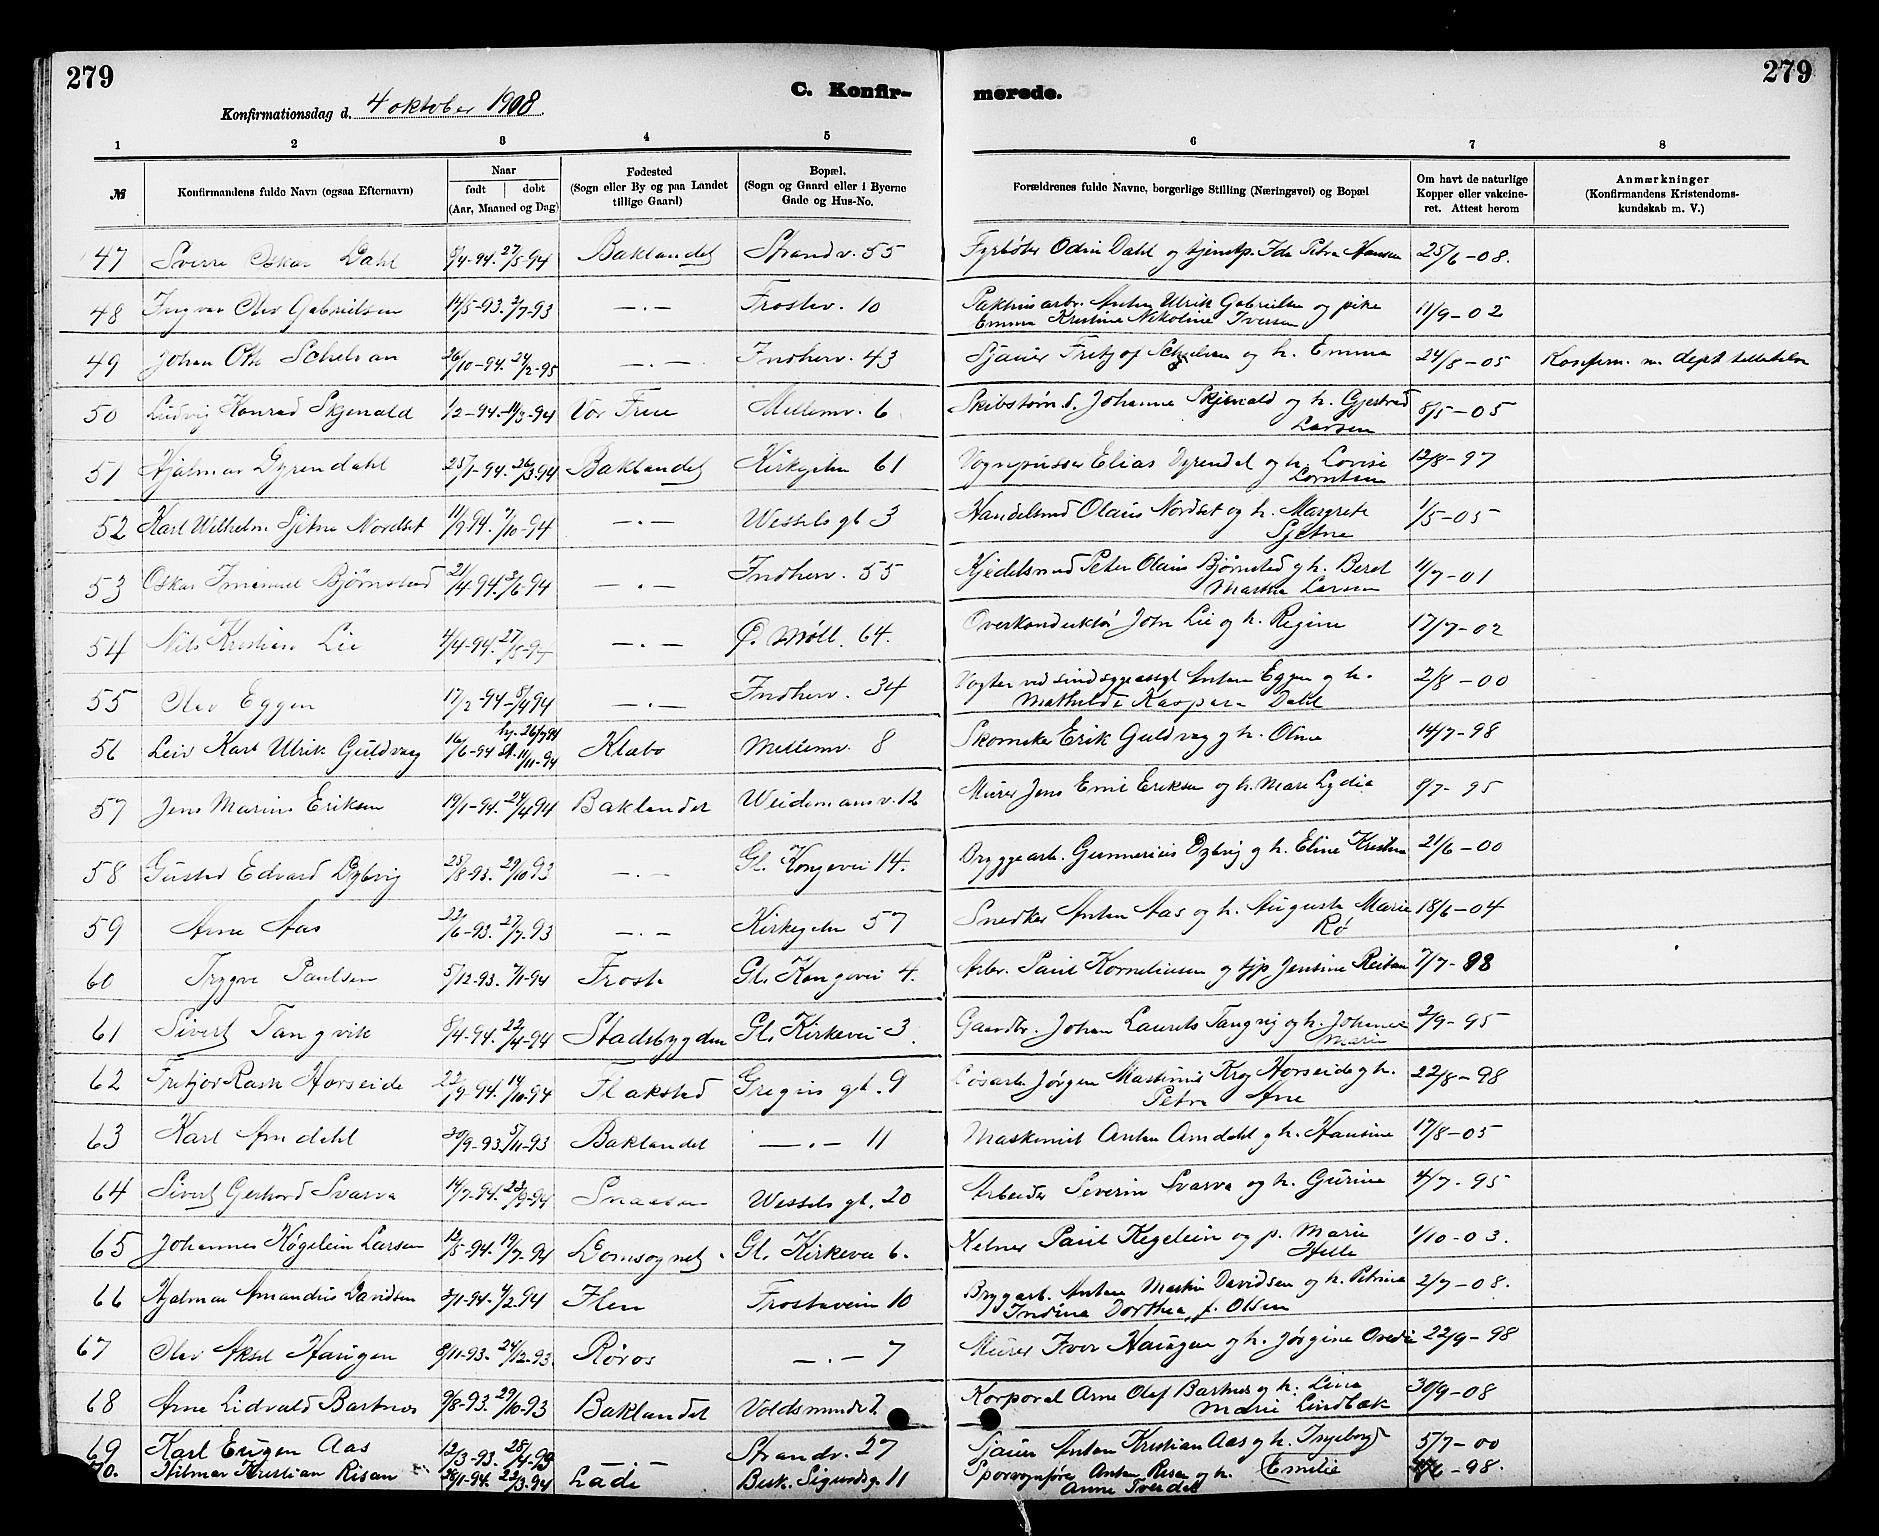 279
C. Konfir-
merede.
279
Konfirmationsdag d. 4 oktober 1908.
1 2 3 4 5 6 7 8
№
Konfirmandens fulde Navn (ogsaa Efternavn)
Naar
født døbt
(Aar, Maaned og Dag)
Fødested
(Sogn eller By og paa Landet
tillige Gaard)
Bopæl.
(Sogn og Gaard eller i Byerne
Gade og Hus-No.
Forældrenes fulde Navne, borgerlige Stilling (Næringsvei) og Bopæl
Om havt de naturlige
Kopper eller vakcine-
ret. Attest herom
Anmærkninger
(Konfirmandens Kristendoms-
kundskab m. V.)
47 Sverre Oskar Dahl 8/4-94. 27/5-94 Baklandet Strandv. 55 Fyrbøter Odin Dahl og tjenstp. Ida Petra Hansen 25/6-08.
48 Ingvar Olav Gabrielsen 14/5-93. 2/7-93 —.— Frostav. 10 Anton Ulrik Gabrielsen og pike 11/9-02
Emma Kristine Nikoline Iversen
49 Johan Otto Schelvan 26/10-94. 24/2-95 —.— Indherv. 43 Sjauer Fritjof og h. Emma 24/8-05 Konfirm. m. dept tilladelse
50 Ludvig Konrad Skjenald 1/2-94. 11/3-94 Vor Frue Mellemv. 6 Skibstømd. Johannes Skjenald og h. Gjertrud 8/5-05
Larsen
51 Hjalmar Dyrendahl 25/1-94. 26/3-94 Baklandet Kirkegtn 61 Vognpusser Elias Dyrendal og h. Lovise 12/8-97
Lorntsen
52 Karl Wilhelm Sjetne Nordset 11/9 94. 7/10-94 —.— Wessels gt 3 Handelsmd Olaus Nordset og h. Margrete 1/5-05
Sjetne
53 Oskar Imanuel Bjørnstad 21/4-94. 3/6-94 —.— Indherv. 55 Kjedelsmed Peter Olaus Bjørnstad og h. Beret 11/7-01
Martha Larsen
54 Nils Kristian Lie 4/4-94. 27/5-94 —.— Ø. Møll. 64. Overkonduktør John Lie og h. Regine 17/7-02
55 Olav Eggen 17/2-94-8/4 94 —.— Indherv. 34 Vogter ved sindsygeasyl Anton Eggen og h. 2/8-00
Mathilde Kaspara Dahl
56 Leiv Karl Ulrik Guldvag 16/6-94 hj. 26/7 94 st. 11/11-94 Klæbo Mellemv. 8 Skomaker Erik Guldvag og h. Oline 14/7-98
57 Jens Marius Eriksen 19/1-94. 24/4 94 Baklandet Weidemansv. 12 Murer Jens Emil Eriksen og h. Mare Lydia 8/7-95
58 Gustav Edvard Dybvig 25/8-93. 29/10 93 —.— Gl. Kongevei 14. Bryggearb. Gunnerius Dybvig og h. Eline Kristine 21/6-00
59 Arne Aas 22/6-93. 27/7-93 —.— Kirkegtn 57 Snedker Anton Aas og h. Augusta Marie 18/6-04
Rö
60 Trygve Paulsen 5/12-93. 7/1-94 Frosta Gl. Kongevei 4. Arbr. Paul Korneliusen og tjp Jensine Reitan 7/7-98
61 Sivert Tangvik 8/4-94. 22/4-94 Stadsbygden Gl. Kirkevei 3. Gaardbr. Johan Laurits Tangvig og h. Johanna 2/9-95
Marie
62 Fritjov Rask Horseide 22/9-94. 14/10-94 Flakstad Gregus gt. 9 Løsarb. Jørgen Martinus Krog Horseide og h. 22/8-98
Petra Arne
63 Karl Amdahl 30/9-93. 5/11-93 Baklandet —.— 11 Maskinist Anton Amdahl og h. Hansine 17/8-05
64 Sivert Gerhard Svarva 14/7-94. 23/9-94 Snaasen Wessels gt. 20 Arbeider Severin Svarva og h. Gurine 4/7-95
65 Johannes Køgelein Larsen 12/5-94. 19/7-94 Domsognet. Gl. Kirkevei 6. Kelner Paul Kegelein og p. Marie 1/10-03.
Helle
66 Hjalmar Amandus Davidsen 3/1-94. 4/2 94 Ilen Frostaveien 10 Brygarb. Anton Martin Davidsen og h. Petrina 2/7-08.
Indina Dorthea, f. Olsen
67 Olav Aksel Haugen 9/11-93. 24/12-93. Røros —.— 7 Murer Ivor Haugen og h. Jørgine Ovedie 22/9-98
68 Arne Lidvald Bartnes 9/8-93. 29/10-93 Baklandet Voldsmindet 2 Korporal Arne Olaf Bartnes og h. Lina 30/9-08
Marie Lindbak
69 Karl Eugen Aas 12/3-93. 28/4-93 —.— Strandv. 27 Sjauer Anton Kristian Aas og h. Ingeborg 5/7-00
Emilie
70. Hilmar Kristian Risan 28/1-94. 23/3-94 Lade Bisk. Sigurdsg. 11 Sporvognfører Anton Risan og h. -98.
Anne Tverdal